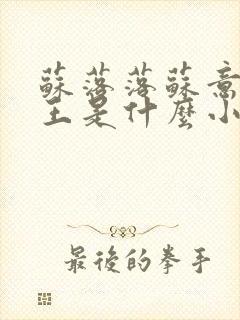 蘇落落蘇意
主是什麼小
最後的拳手